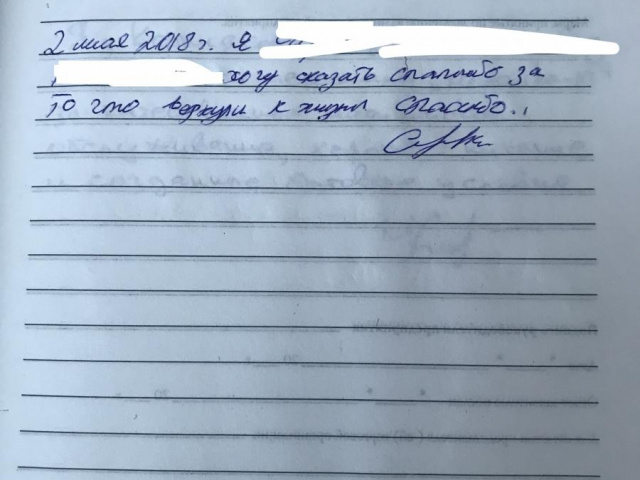 2 мая 2018г. Я
хочу сказать спасибо за
то что вернули к жизни спасибо..